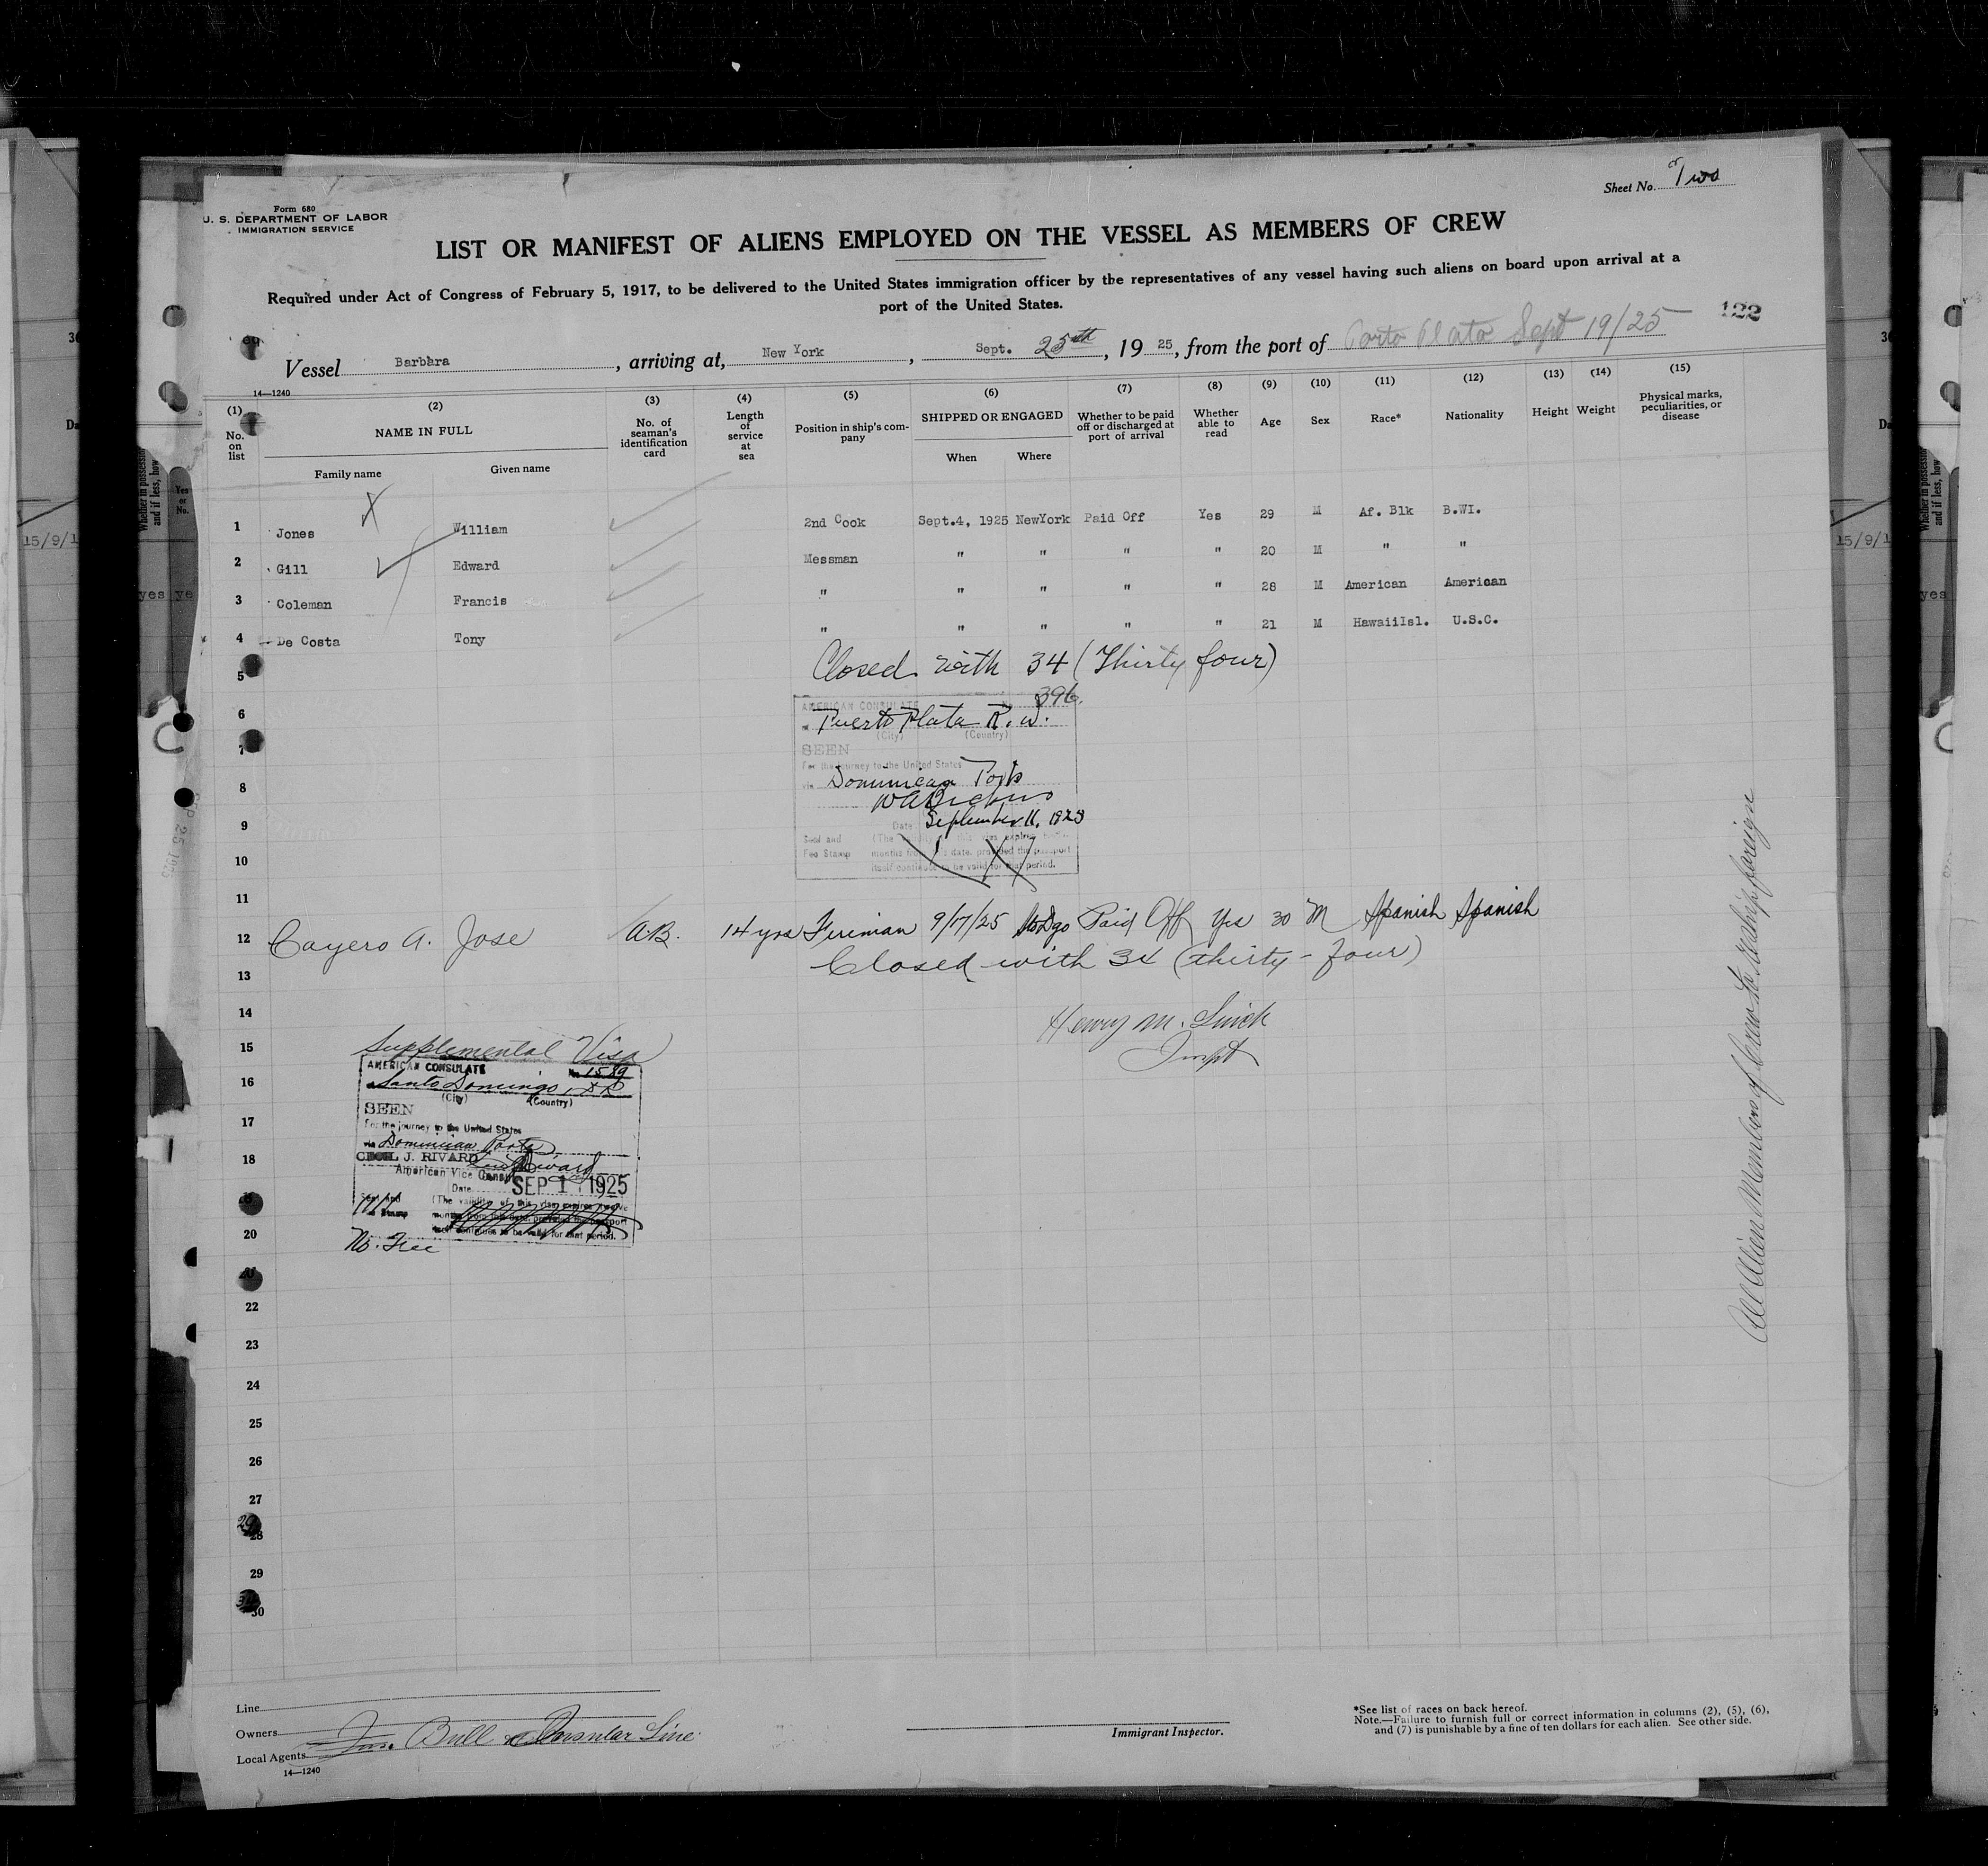 Sheet No. Two
Form 680
U. S. DEPARTMENT OF LABOR
IMMIGRATION SERVICE
LIST OR MANIFEST OF ALIENS EMPLOYED ON THE VESSEL AS MEMBERS OF CREW
Required under Act of Congress of February 5, 1917, to be delivered to the United States immigration officer by the representatives of any vessel having such aliens on board upon arrival at a
port of the United States.
122
Vessel Barbara, arriving at, New York, Sept. 25th, 19 25, from the port of Porto Plata Sept 19/25
14—1240
(1) No. on list
(2) NAME IN FULL
Family name Given name
(3) No. of seaman's identification card
(4) Length of service at sea
(5) Position in ship's com-pany
(6) SHIPPED OR ENGAGED
When Where
(7) Whether to be paid off or discharged at port of arrival
(8) Whether able to read
(9) Age
(10) Sex
(11) Race*
(12) Nationality
(13) Height
(14) Weight
(15) Physical marks, peculiarities, or disease
1 Jones William 2nd Cook Sept.4, 1925 NewYork Paid Off Yes 29 M Af. Blk B.WI.
2 Gill Edward Messman " " " " 20 M " "
3 Coleman Francis " " " " " 28 M American American
4 De Costa Tony " " " " " 21 M HawaiiIsl. U.S.C.
5 Closed with 34 (Thirty four)
AMERICAN CONSULATE 396.
6 Puerto Plata R. D.
(City) (Country)
7 SEEN
For the journey to the United States
8 via Dominican Ports
9 Date September 11, 1925
Seal and Fee Stamp
10 months from this date, provided the passport
itself continues to be valid for that period.
11
12 Cayero A. Jose A.B. 14 yrs Fireman 9/17/25 StoDgo Paid Off Yes 30 M Spanish Spanish
13 Closed with 34 (thirty-four)
14 Henry M.
15 Supplemental Visa
AMERICAN CONSULATE No. 1589
16 Santo Domingo, D.R.
(City) (Country)
SEEN
17 For the journey to the United States
via Dominican Ports
18 CECIL J. RIVARD
American Vice Consul
Date SEP 1 1925
19 Seal and (The validity of this visa expires twelve
Fee Stamp months from this date, provided the passport
20 itself continues to be valid for that period.
No. Fee
22
23
24
25
26
27
28
29
30
All Alien Members of Crew to reship foreign
Line
Owners
Local Agents Bull Insular Line
14—1240
Immigrant Inspector.
*See list of races on back hereof.
Note.—Failure to furnish full or correct information in columns (2), (5), (6),
and (7) is punishable by a fine of ten dollars for each alien. See other side.